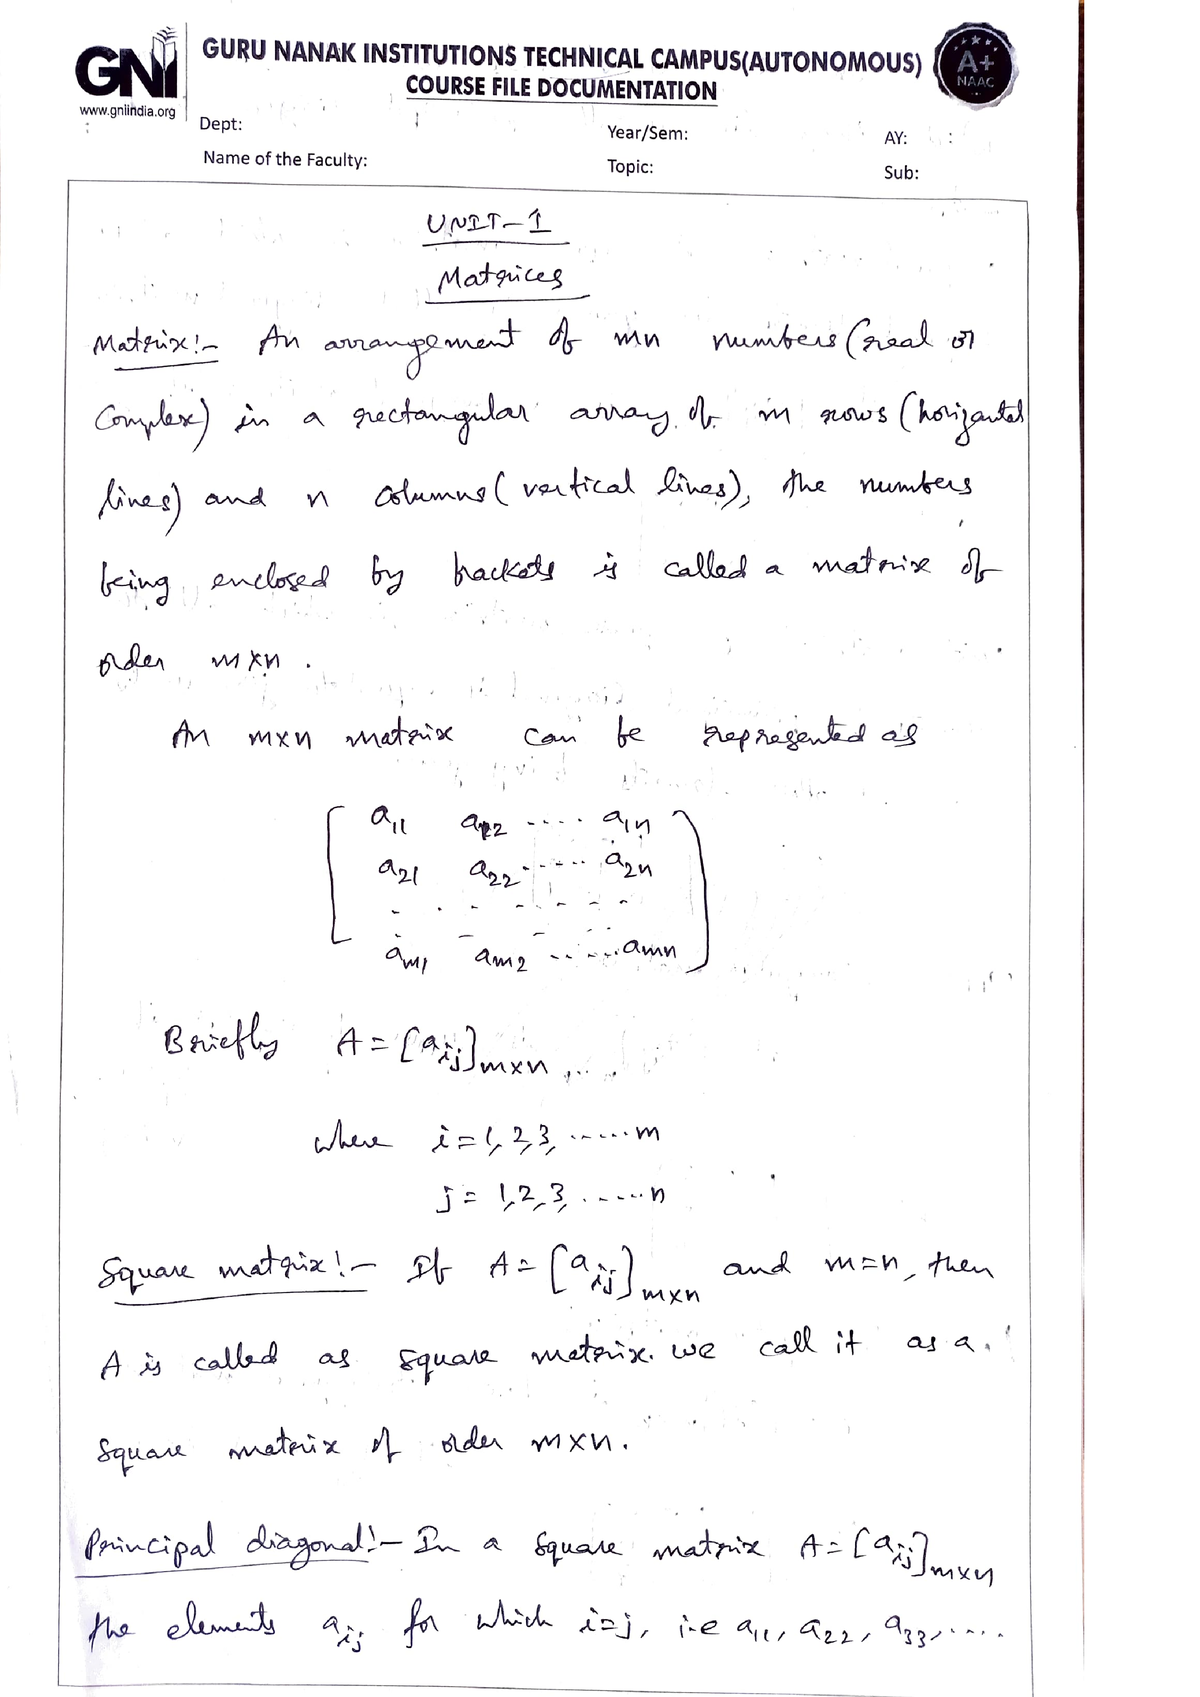 GNI
www.gniindia.org
GURU NANAK INSTITUTIONS TECHNICAL CAMPUS(AUTONOMOUS)
COURSE FILE DOCUMENTATION
A+
NAAC
Dept:
Year/Sem:
AY: :
Name of the Faculty:
Topic:
Sub:
UNIT-1
Matrices
Matrix:- An arrangement of mn numbers (real or
Complex) in a rectangular array of m rows (horizantal
lines) and n columns (vertical lines), the numbers
being enclosed by brackets is called a matrix of
order m×n.
An m×n matrix can be represented as
[ a11 a12 ---- a1n ]
a21 a22 ----- a2n
- - - - - - -
am1 am2 ------ amn
Briefly A = [aij]m×n
where i = 1, 2, 3, ...... m
j = 1, 2, 3, ...... n
Square matrix:- If A = [aij]m×n and m=n, then
A is called as square matrix. we call it as a
square matrix of order m×n.
Principal diagonal:- In a square matrix A = [aij]m×n
the elements aij for which i=j, i.e a11, a22, a33, .....